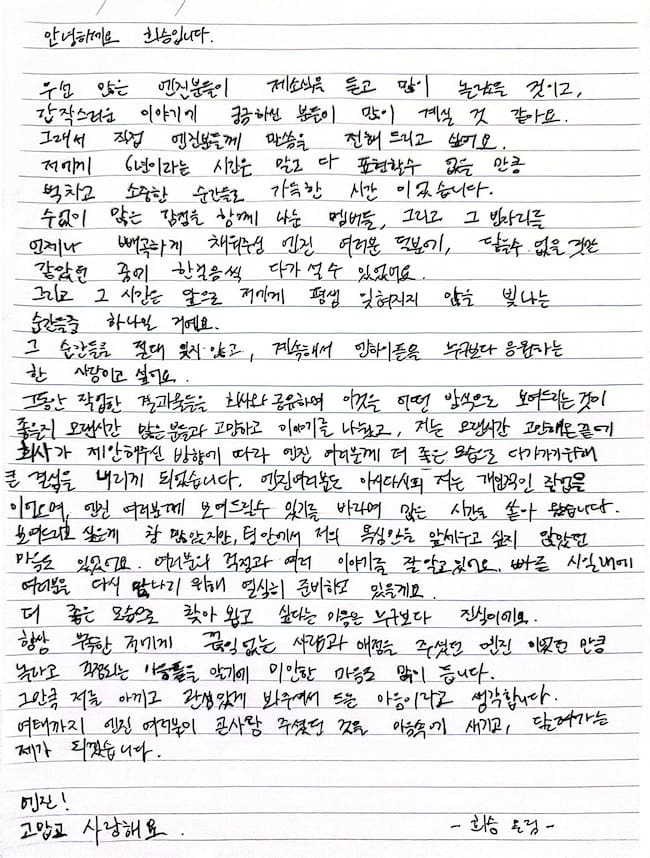 안녕하세요 희승입니다.
우선 많은 엔진분들이 제소식을 듣고 많이 놀랐을 것이고,
갑작스러운 이야기에 궁금하신 분들이 많이 계실 것 같아요.
그래서 직접 엔진분들께 말씀을 전해 드리고 싶어요.
저에게 6년이라는 시간은 말로 다 표현할수 없을 만큼
벅차고 소중한 순간들로 가득한 시간 이었습니다.
수없이 많은 감정을 함께 나눈 멤버들, 그리고 그 빈자리를
언제나 빼곡하게 채워주신 엔진 여러분 덕분에, 닿을수 없을 것만
같았던 꿈에 한걸음씩 다가 설 수 있었어요.
그리고 그 시간은 앞으로 저에게 평생 잊혀지지 않을 빛나는
순간들중 하나일 거예요.
그 순간들을 절대 잊지 않고, 계속해서 엔하이픈을 누구보다 응원하는
한 사람이고 싶어요.
그동안 작업한 결과물들을 회사와 공유하며 이것을 어떤 방식으로 보여드리는것이
좋을지 오랜시간 많은 분들과 고민하고 이야기를 나눴고, 저는 오랜시간 고민해온끝에
회사가 제안해주신 방향에 따라 엔진 여러분께 더 좋은 모습으로 다가가기위해
큰 결심을 내리게 되었습니다. 엔진여러분도 아시다시피 저는 개인적인 작업을
이어오며, 엔진 여러분께 보여드릴수 있기를 바라며 많은 시간을 쏟아 왔습니다.
보여드리고 싶은게 참 많았지만, 팀 안에서 저의 욕심만을 앞세우고 싶지 않았던
마음도 있었어요. 여러분의 걱정과 여러 이야기를 잘 알고 있어요. 빠른 시일내에
여러분을 다시 만나기 위해 열심히 준비하고 있을게요.
더 좋은 모습으로 찾아 뵙고 싶다는 마음은 누구보다 진심이에요.
항상 부족한 저에게 끊임없는 사랑과 애정을 주셨던 엔진 이었던 만큼
놀라고 걱정되는 마음들을 알기에 미안한 마음도 많이 듭니다.
그만큼 저를 아끼고 관심있게 봐주셔서 드는 마음이라고 생각합니다.
여태까지 엔진 여러분이 큰사랑 주셨던 것을 마음속에 새기고, 달려가는
제가 되겠습니다.
엔진!
고맙고 사랑해요.
- 희승 드림 -